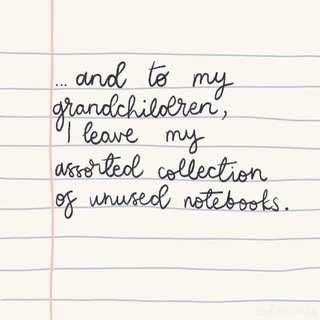 ... and to my
grandchildren,
I leave my
assorted collection
of unused notebooks.